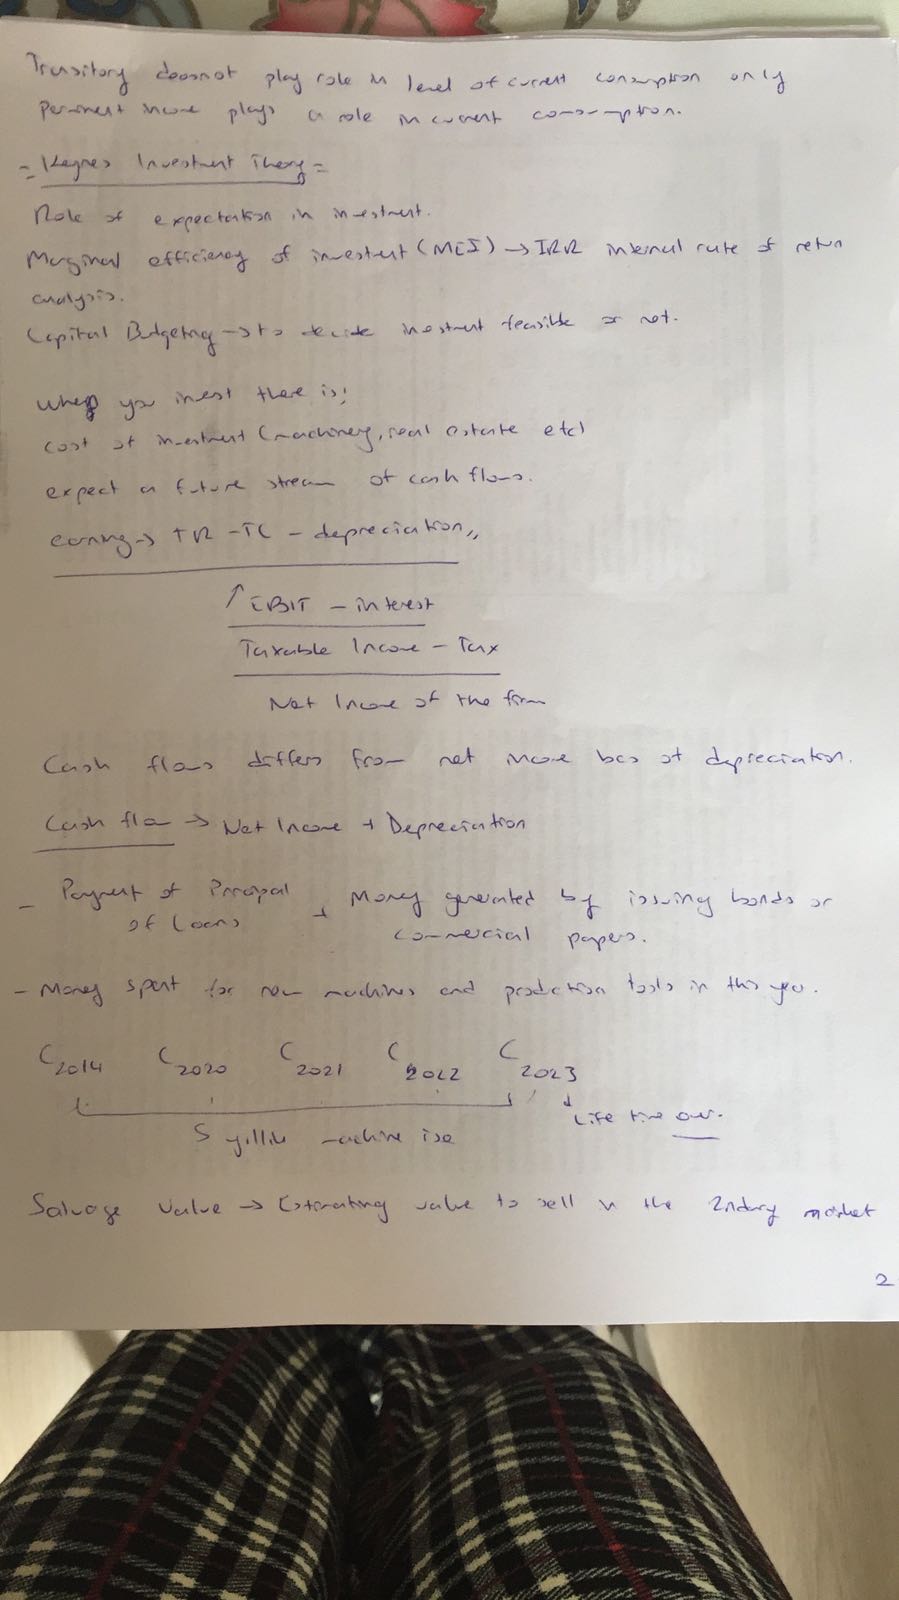 Transitory doesnot play role in level of current consumption only
permanent income plays a role in current consumption.
= Keynes Investment Theory =
Role of expectation in investment.
Marginal efficiency of investment (MEI) → IRR internal rate of return
analysis.
Capital Budgeting → to decide investment feasible or not.
When you invest there is;
cost of investment (machinery, real estate etc)
expect a future stream of cash flows.
earning → TR - TC - depreciation,,
↑ EBIT - interest
Taxable Income - Tax
Net Income of the firm
Cash flows differs from net income bcs of depreciation.
Cash flow → Net Income + Depreciation
- Payment of Principal of Loans + Money generated by issuing bonds or
commercial papers.
- Money spent for new machines and production tools in this year.
C2014 C2020 C2021 C2022 C2023
5 yıllık machine ise
Life time over.
Salvage Value → Estimating value to sell in the 2ndary market
2